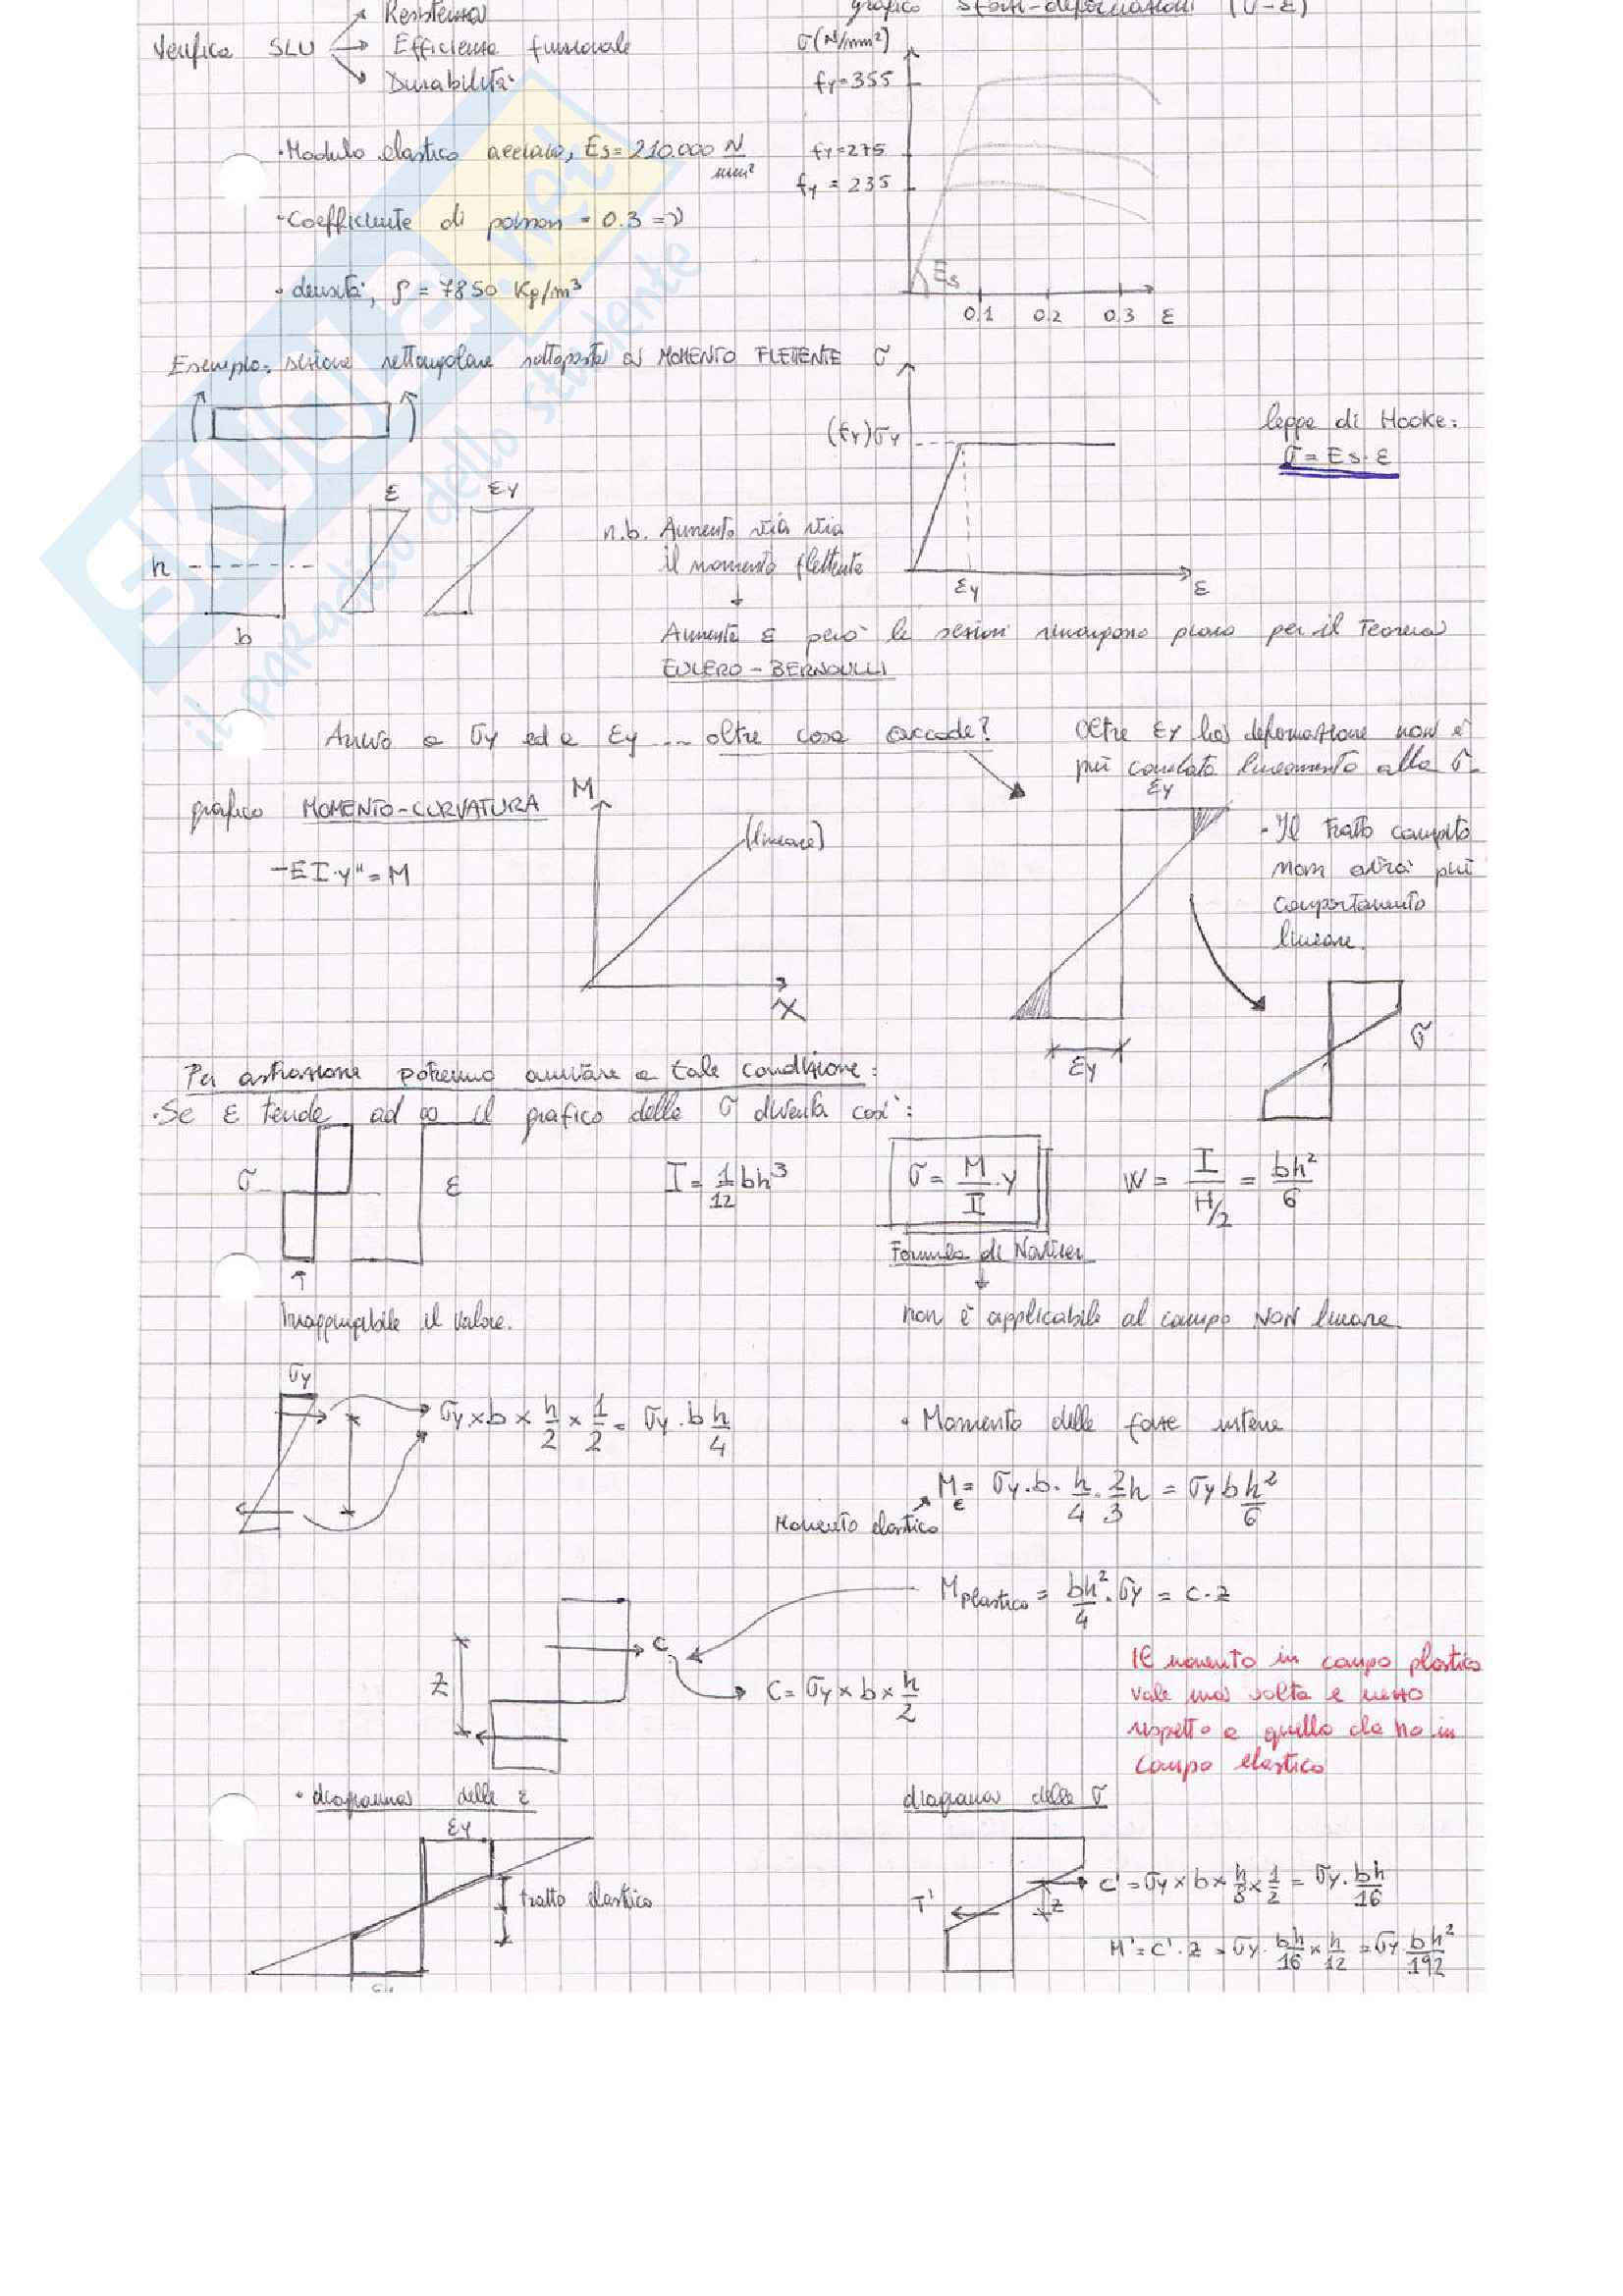 Resistenza
grafico sforzi-deformazioni (σ-ε)
Verifica SLU → Efficienza funzionale
Durabilità
σ(N/mm²)
fy=355
fy=275
fy=235
Es
0,1 0,2 0,3 ε
·Modulo elastico acciaio, Es=210.000 N/mm²
·Coefficiente di poisson = 0.3 =ν
·densità, ρ = 7850 Kg/m³
Esempio: sezione rettangolare sottoposta a MOMENTO FLETTENTE
σ
(fy)σy
εy
ε
legge di Hooke:
σ=Es·ε
ε
εy
h
b
n.b. Aumento via via
il momento flettente
↓
Aumenta ε però le sezioni rimangono piane per il Teorema
EULERO-BERNOULLI
Arrivo a σy ed a εy ... oltre cosa accade?
Oltre εy la deformazione non è
più correlata linearmente alla σ
εy
grafico MOMENTO-CURVATURA
-EI·y"=M
M
(lineare)
χ
·Il tratto campito
non avrà più
comportamento
lineare.
εy
σ
Per astrazione potremo arrivare a tale condizione:
·Se ε tende ad ∞ il grafico delle σ diventa così:
σ
ε
I=1/12 bh³
σ=M/I·y
W=I/(H/2)=bh²/6
Formula di Navier
↓
Irraggiungibile il valore.
non è applicabile al campo NON lineare
σy
σy×b×h/2×1/2=σy·b h/4
·Momento delle forze interne
Me=σy·b·h/4·2/3h=σy bh²/6
Momento elastico
Mplastico=bh²/4·σy=C·z
C
z
C=σy×b×h/2
Il momento in campo plastico
vale una volta e mezzo
rispetto a quello che ho in
campo elastico
·diagramma delle ε
εy
tratto elastico
diagramma delle σ
T'
z
C'=σy×b×h/8×1/2=σy·bh/16
M'=C'·z=σy·bh/16×h/12=σy·bh²/192
SKUOLA.net
il paradiso dello studente